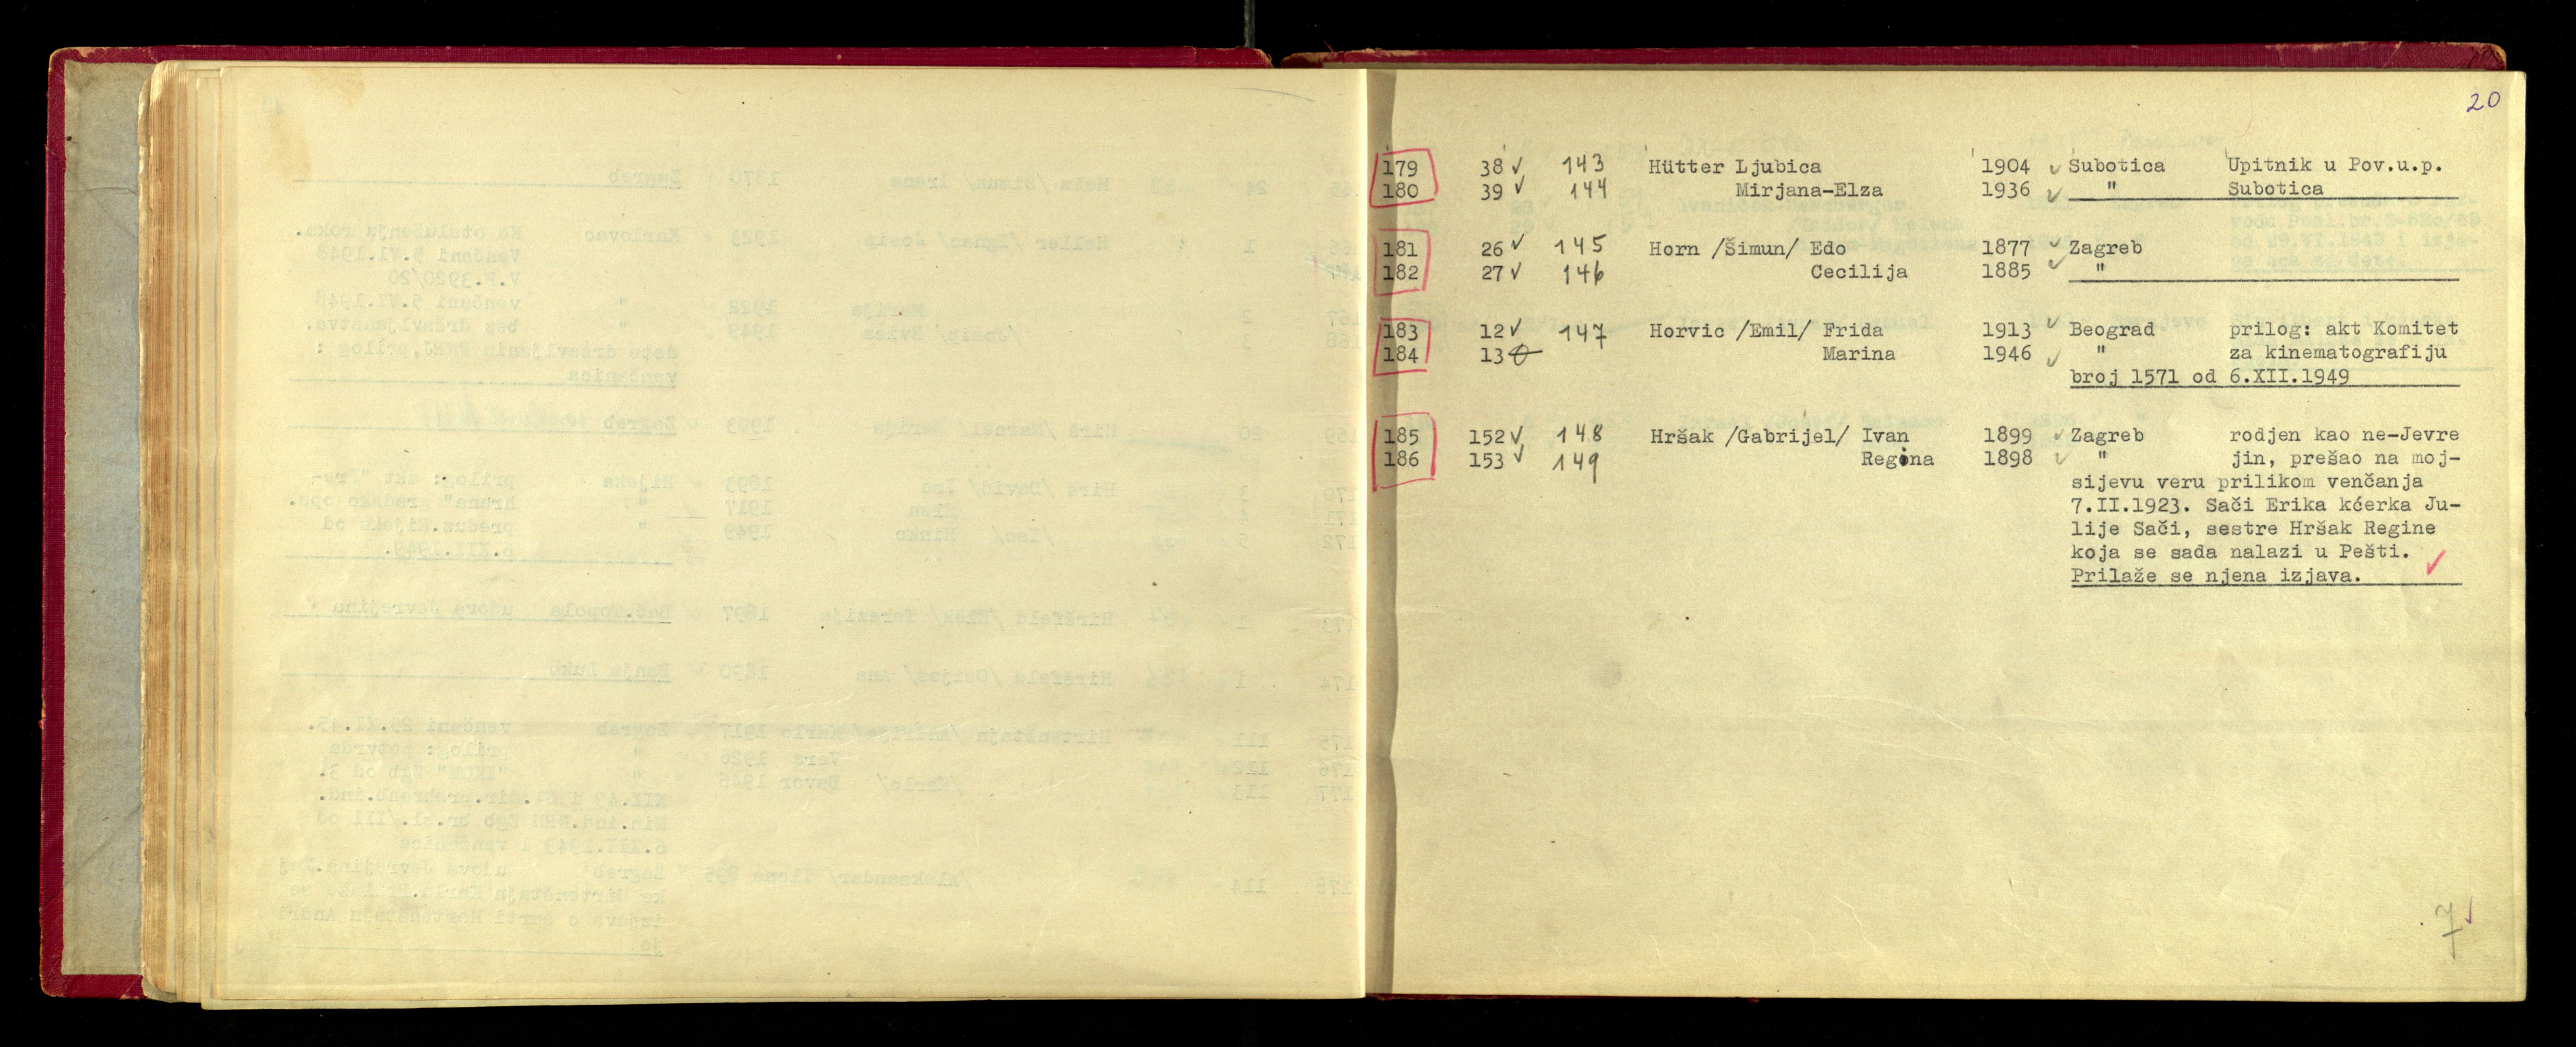 20
179 38 ✓ 143 Hütter Ljubica 1904 ✓ Subotica Upitnik u Pov.u.p.
180 39 ✓ 144 Mirjana-Elza 1936 ✓ " Subotica
181 26 ✓ 145 Horn /Šimun/ Edo 1877 ✓ Zagreb
182 27 ✓ 146 Cecilija 1885 ✓ "
183 12 ✓ 147 Horvic /Emil/ Frida 1913 ✓ Beograd prilog: akt Komitet
184 13 Marina 1946 ✓ " za kinematografiju
broj 1571 od 6.XII.1949
185 152 ✓ 148 Hršak /Gabrijel/ Ivan 1899 ✓ Zagreb rodjen kao ne-Jevre
186 153 ✓ 149 Regina 1898 ✓ " jin, prešao na moj-
sijevu veru prilikom venčanja
7.II.1923. Sači Erika kćerka Ju-
lije Sači, sestre Hršak Regine
koja se sada nalazi u Pešti.
Prilaže se njena izjava. ✓
7 ✓